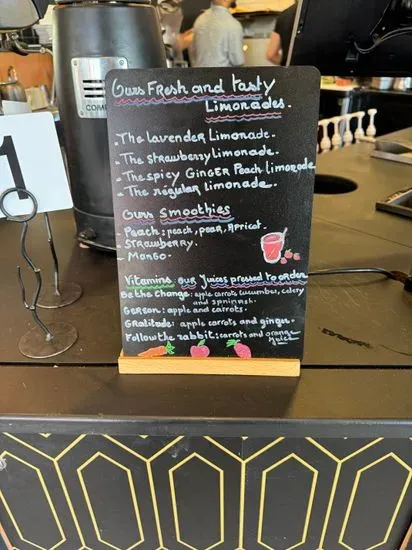 Ours Fresh and tasty
Limonades.
- The lavender Limonade.
- The strawberry limonade.
- The spicy GinGer Peach limonade
- The regular limonade.
Ours smoothies
Peach: peach, pear, Apricot.
- Strawberry.
- Mango.
Vitamins our juices pressed to order
Be the change: apple carrots cucumber, celery
and spninash.
Gerson: apple and carrots.
Gratitude: apple carrots and ginger.
Follow the rabbit: carrots and orange
juice
1
COMP